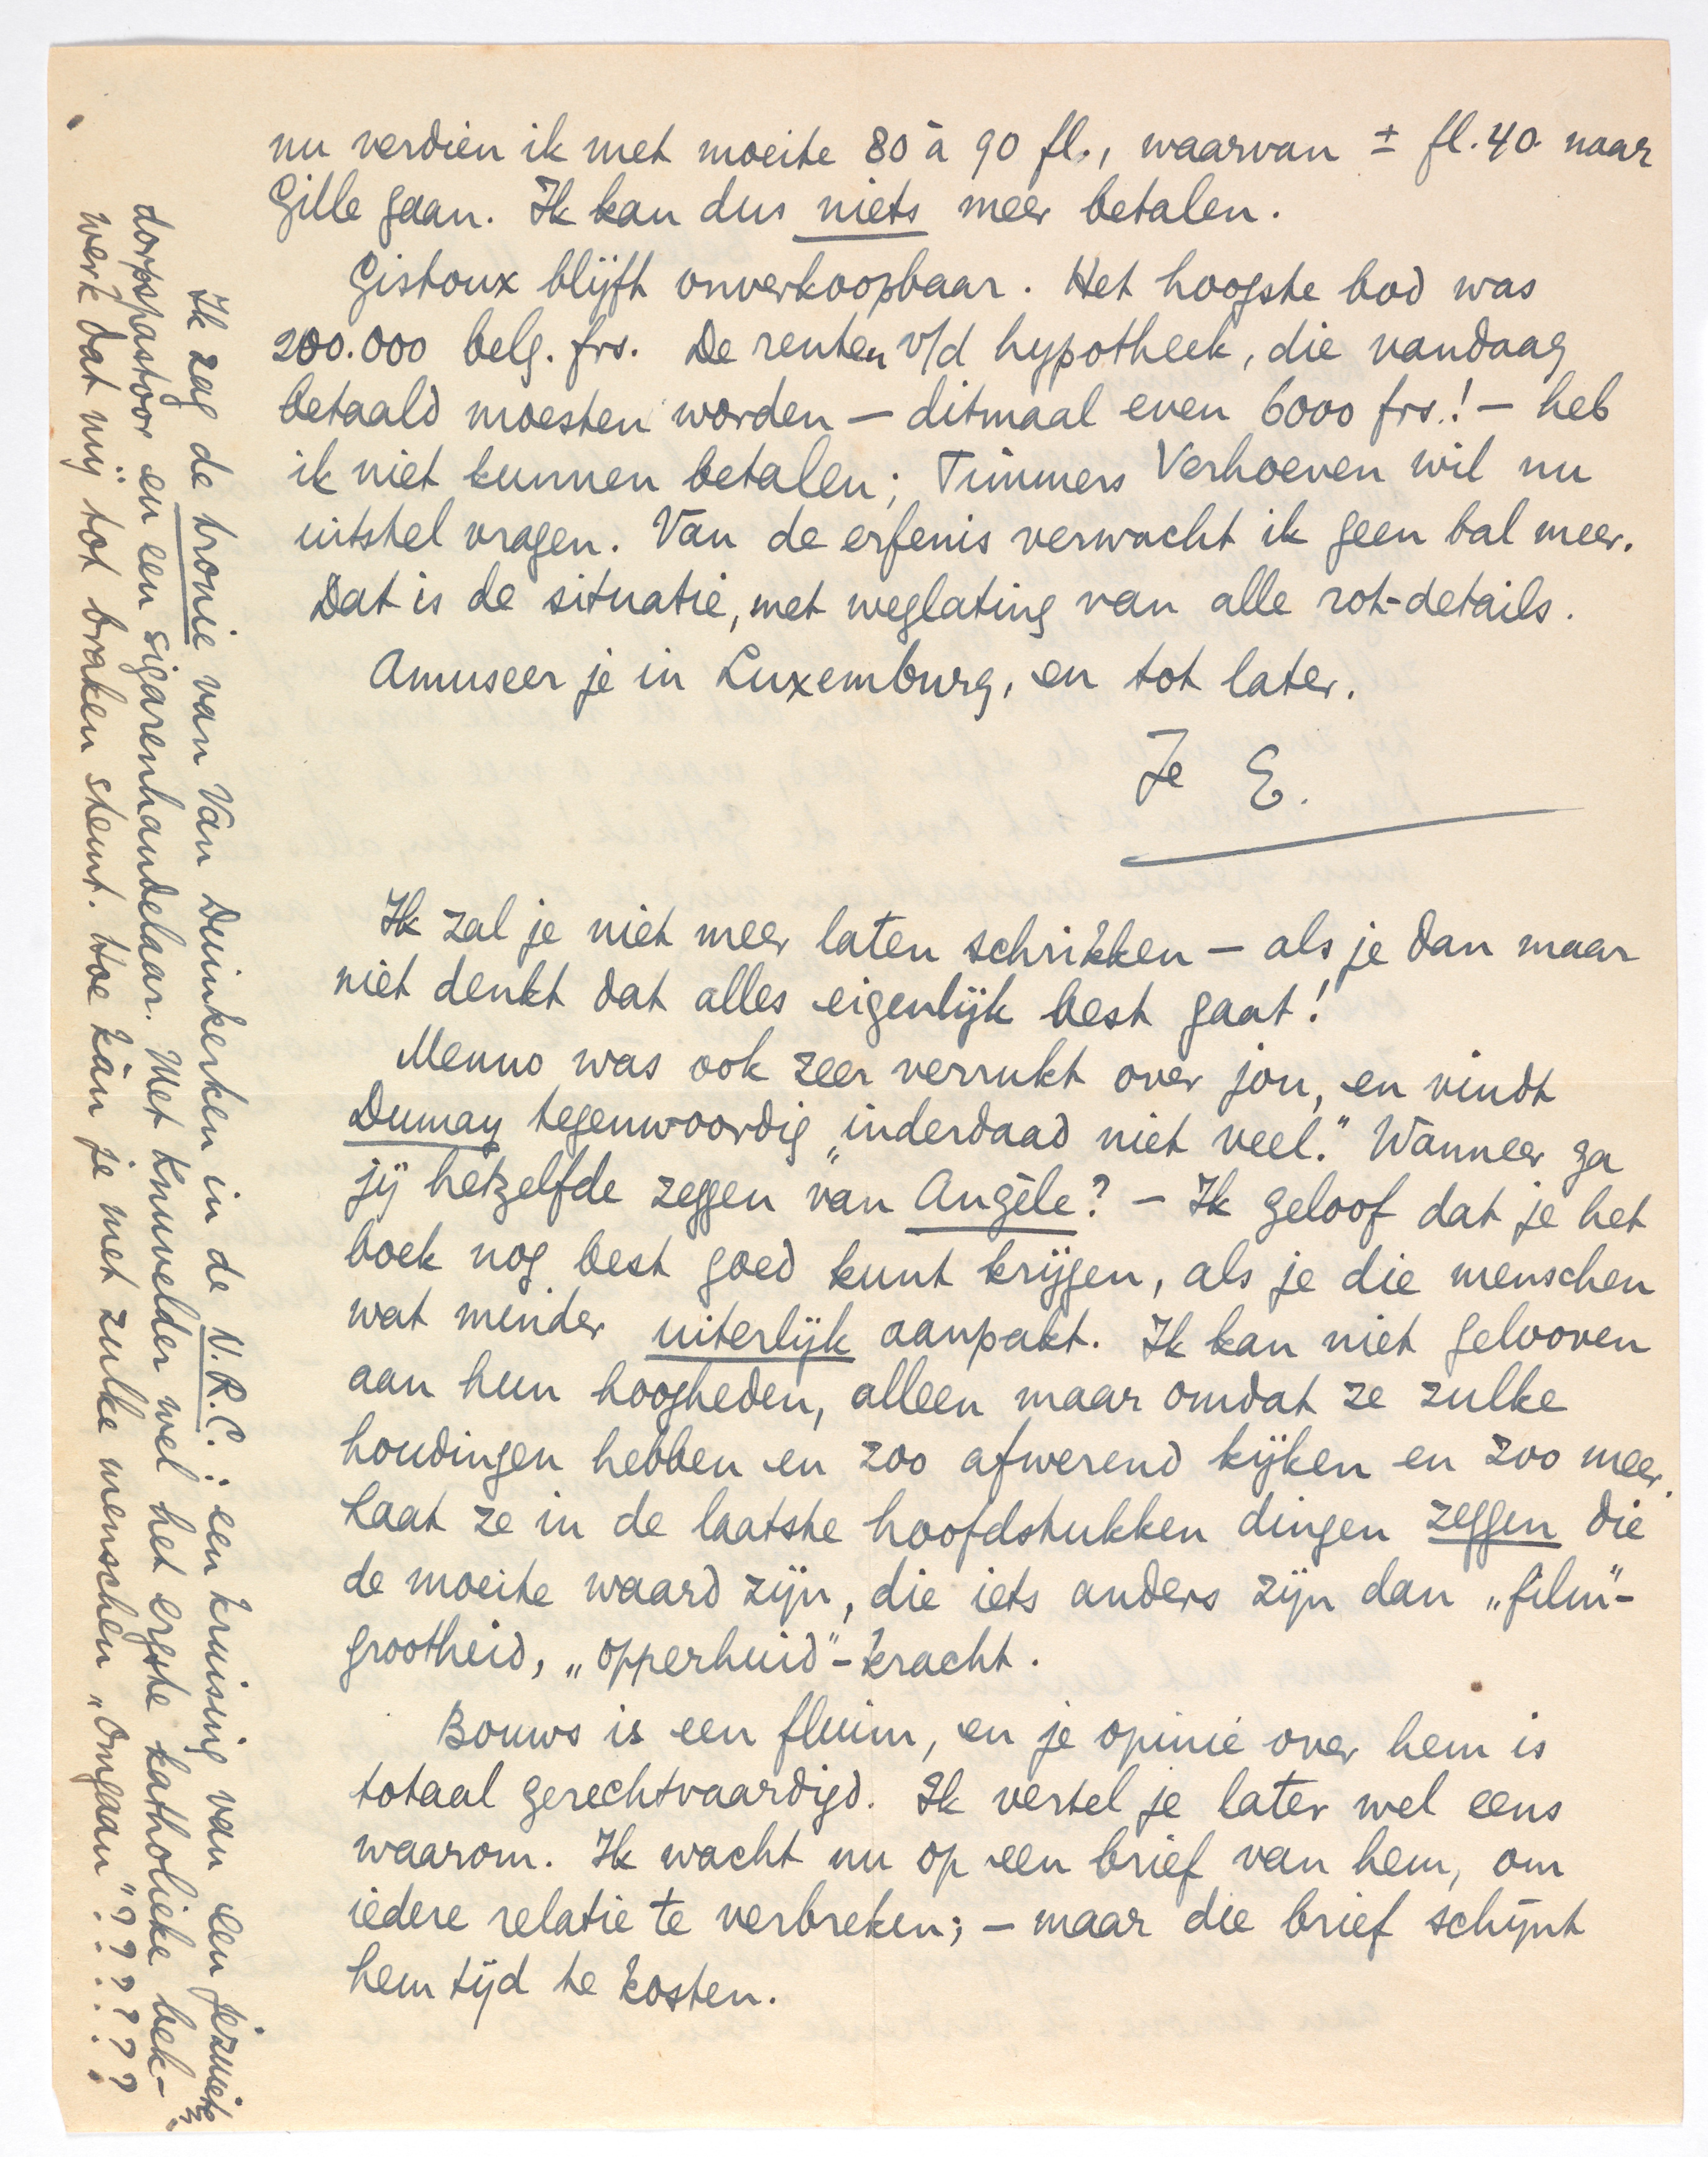 nu verdien ik met moeite 80 à 90 fl., waarvan ± fl. 40 naar
Gille gaan. Ik kan dus niets meer betalen.
Gistoux blijft onverkoopbaar. Het hoogste bod was
200.000 belg. frs. De renten v/d hypotheek, die vandaag
betaald moesten worden — ditmaal even 6000 frs.! — heb
ik niet kunnen betalen; Timmers Verhoeven wil nu
uitstel vragen. Van de erfenis verwacht ik geen bal meer.
Dat is de situatie, met weglating van alle rot-details.
Amuseer je in Luxemburg, en tot later.
Je E.
Ik zal je niet meer laten schrikken — als je dan maar
niet denkt dat alles eigenlijk best gaat!
Menno was ook zeer verrukt over jou, en vindt
Dumay tegenwoordig „inderdaad niet veel." Wanneer ga
jij hetzelfde zeggen van Angèle? — Ik geloof dat je het
boek nog best goed kunt krijgen, als je die menschen
wat minder uiterlijk aanpakt. Ik kan niet gelooven
aan hun hoogheden, alleen maar omdat ze zulke
houdingen hebben en zoo afwerend kijken en zoo meer.
Laat ze in de laatste hoofdstukken dingen zeggen die
de moeite waard zijn, die iets anders zijn dan „film"-
grootheid, „opperhuid"-kracht.
Bouws is een fluim, en je opinie over hem is
totaal gerechtvaardigd. Ik vertel je later wel eens
waarom. Ik wacht nu op een brief van hem, om
iedere relatie te verbreken; — maar die brief schijnt
hem tijd te kosten.
Ik zag de tronie van Van Duinkerken in de V.R.C.: een kruising van een jezuietz.
dorpspastoor en een sigarenhandelaar. Met Knuvelder wel het ergste katholieke bek-
werk dat mij tot braken stemt. Hoe kàn je met zulke menschen „omgaan"??????